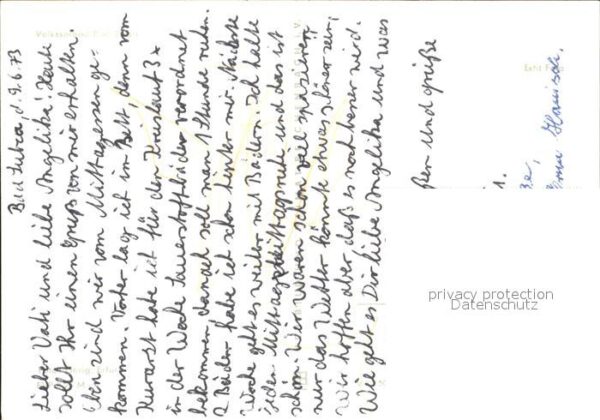 Bad Sulza, d. 9.6.73
Lieber Vati und liebe Angelika! Heute
sollt Ihr einen Gruß von mir erhalten
Eben sind wir vom Mittagessen ge-
kommen. Vorher lag ich im Bett denn vom
Kurarzt habe ich für den Kreislauf 3x
in der Woche Sauerstoffbäder verordnet
bekommen danach soll man 1 Stunde ruhen.
2 Bäder habe ich schon hinter mir. Nächste
Woche geht es weiter mit Bädern. Ich halte
jeden Mittag und das ist
schön. Wir waren schon viel spazieren
nur das Wetter könnte etwas schöner sein,
Wir hoffen aber daß es noch besser wird.
Wie geht es Dir liebe Angelika und was
ßen und grüße
1.
ße,
Hanisch.
privacy protection
Datenschutz